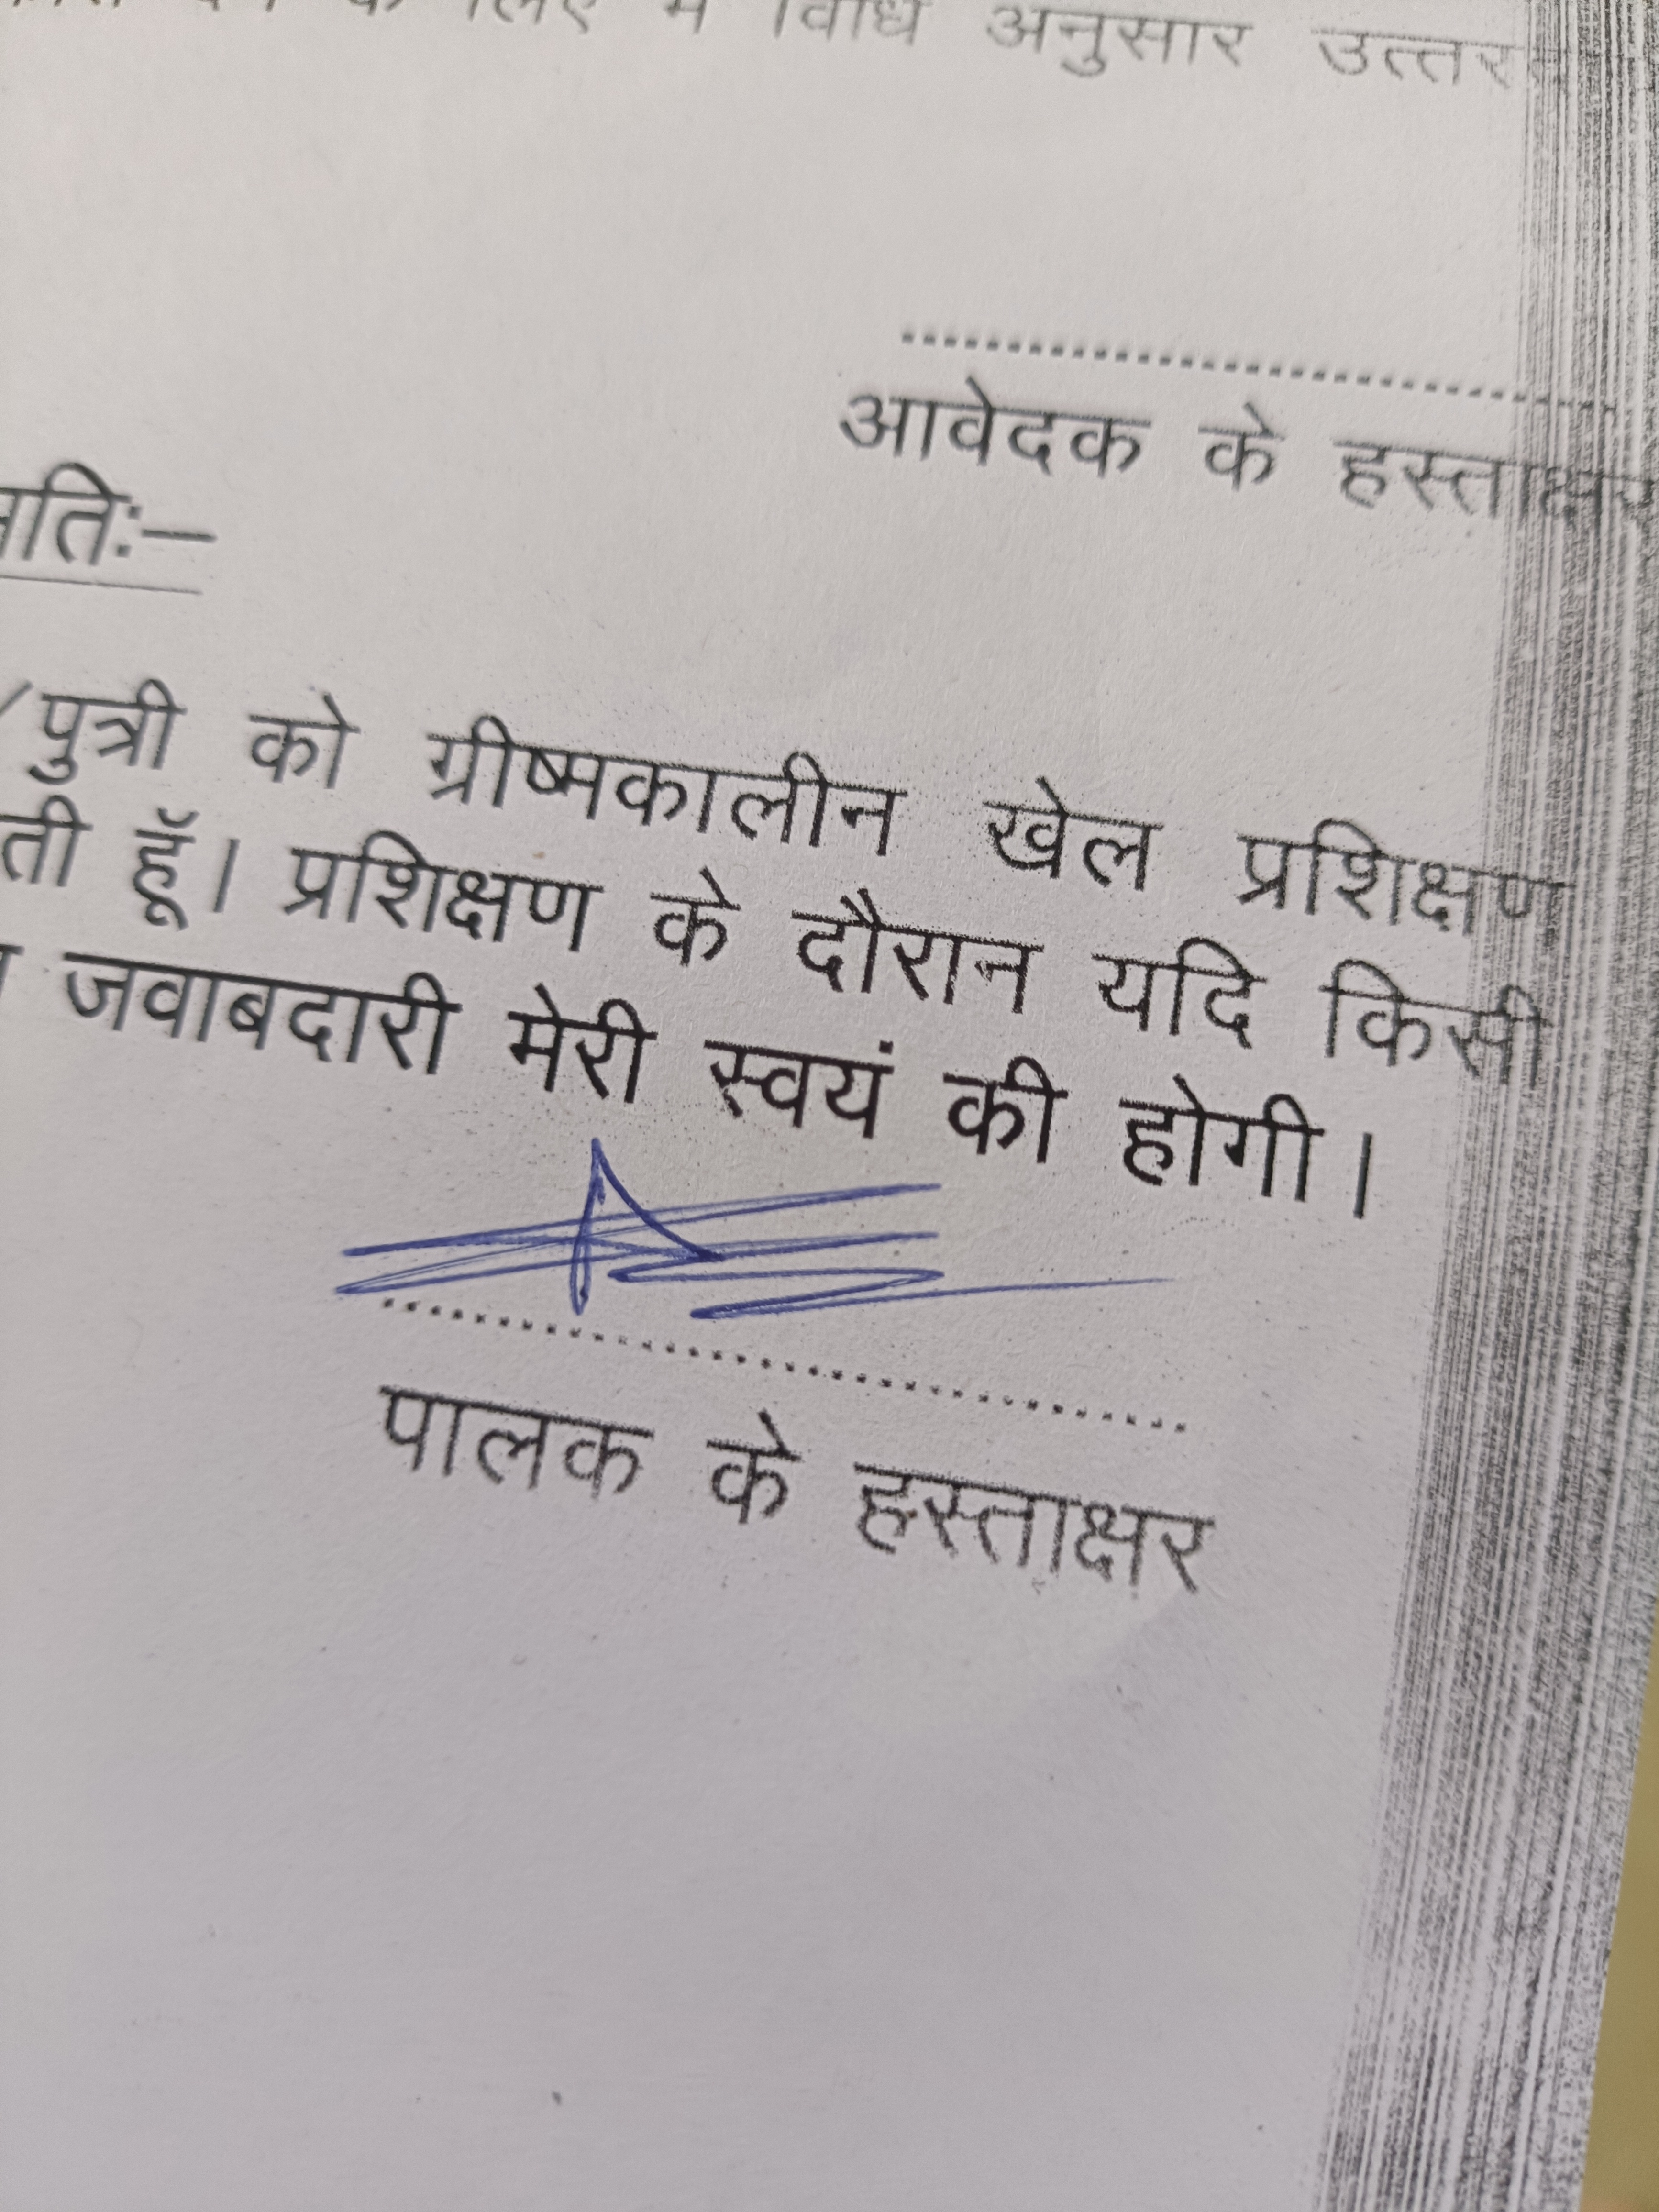 के लिए मैं विधि अनुसार
आवेदक के हस्ताक्षर
/पुत्री को ग्रीष्मकालीन खेल प्रशिक्षण
हूॅ। प्रशिक्षण के दौरान यदि किसी
जवाबदारी मेरी स्वयं की होगी।
पालक के हस्ताक्षर